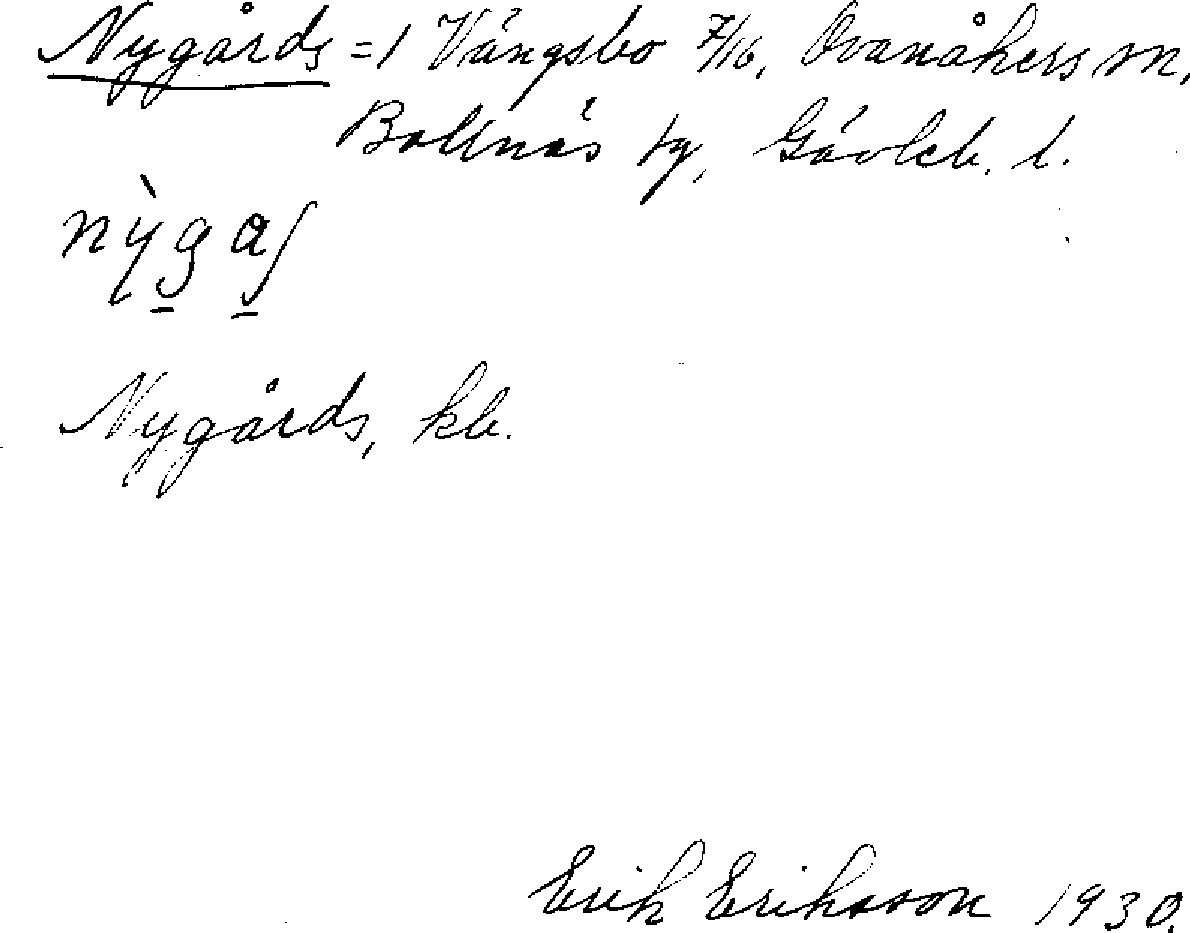 Nygårds = 1 Vängsbo 7/16, Ovanåkers sn,
Bollnäs tg, Gävleb. l.
Nygårds, kb.
Erik Eriksson 1930.